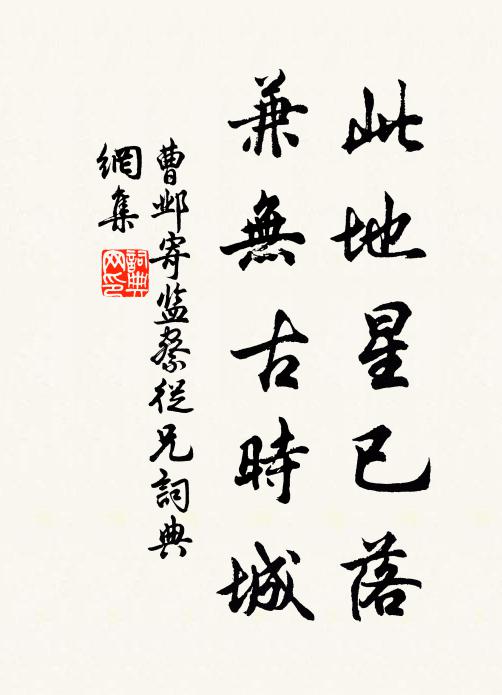 此地星已落
兼無古時城
曹邺寄监察從兄詞典
網集
詞典
网印